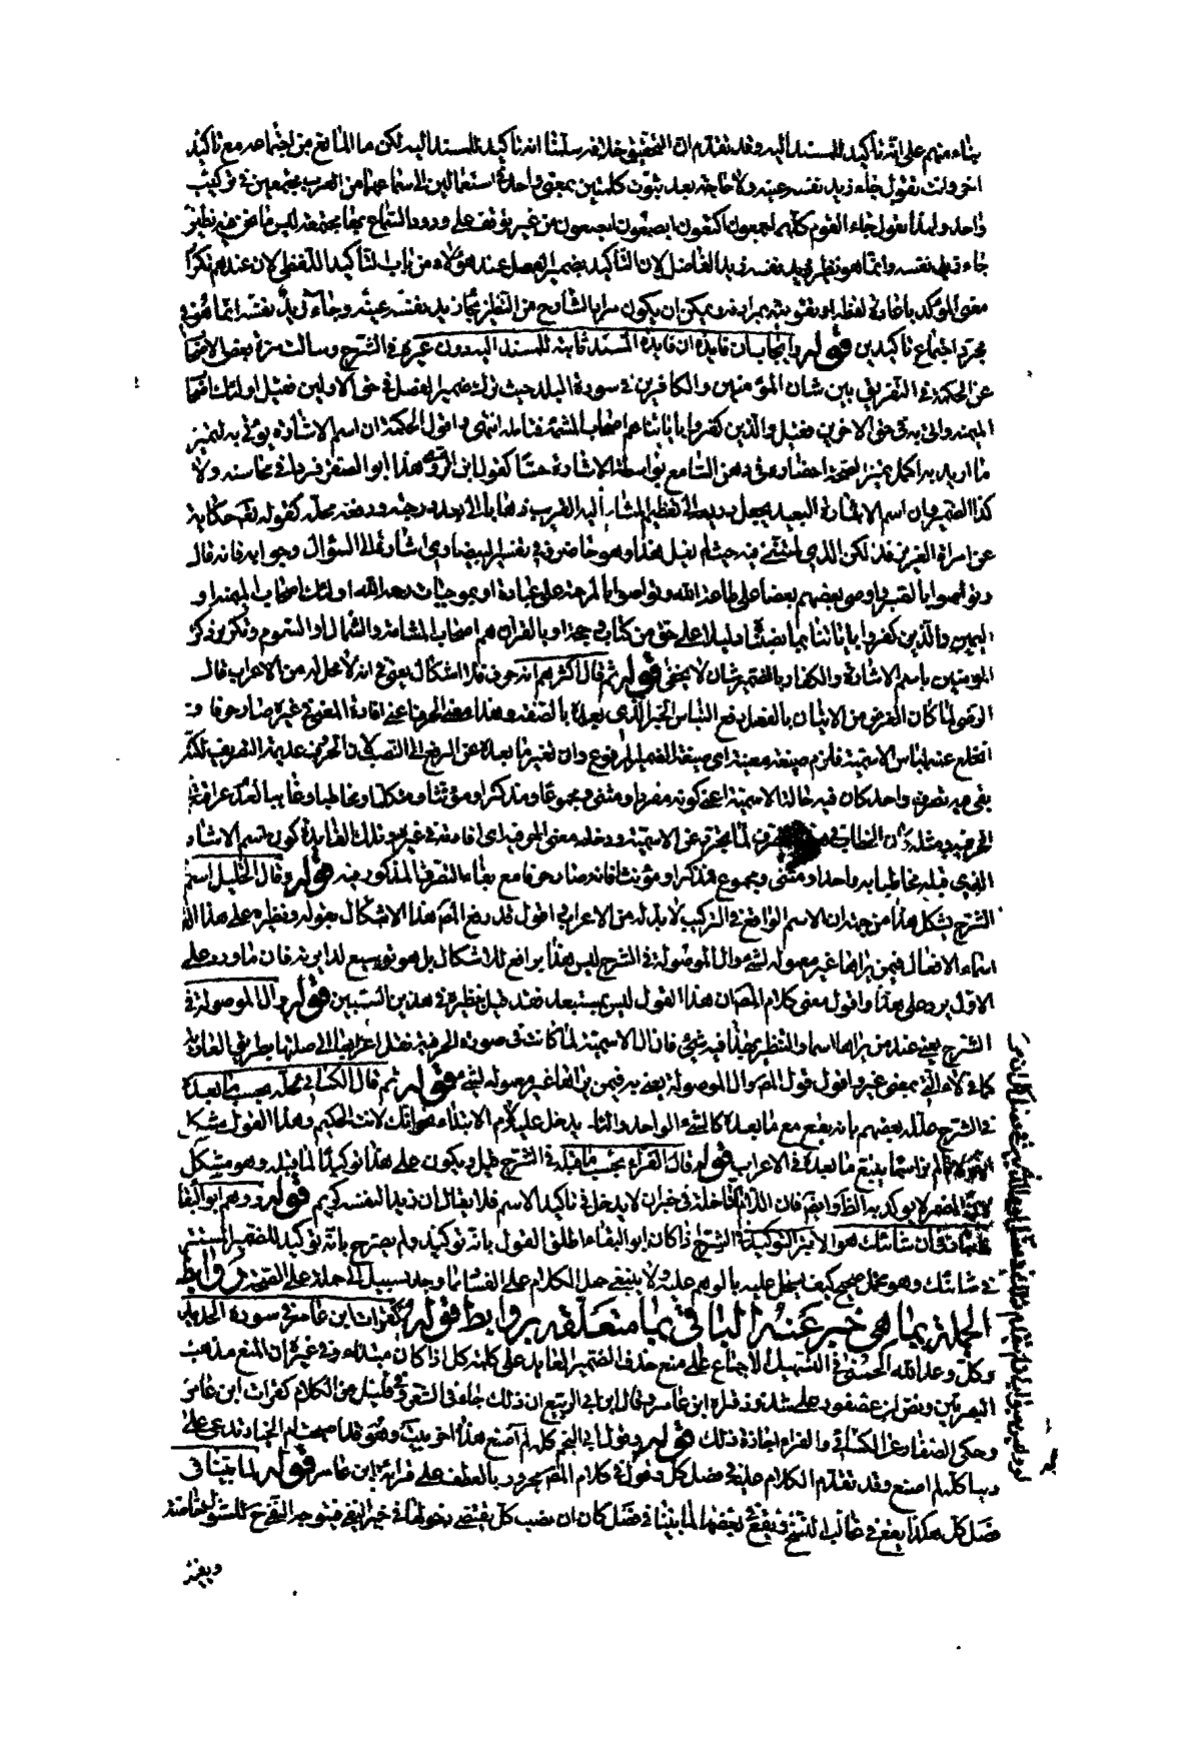 بناء منهم على انه تاكيد للمسند اليه وقد تقدم ان التحقيق خلافه سلمنا انه تاكيد للمسند اليه لكن ما المانع من اجتماعه مع تاكيد
اخر وانت تقول جاء زيد نفسه عينه ولا حاجة بعد ثبوت كلمتين بمعنى واحد في استعمالين الى سماعهما من العرب مجتمعين في تركيب
واحد ولهذا تقول جاء القوم كلهم اجمعون اكتعون ابصعون ابتعون من غير توقف على ورود السماع بها مجتمعة ليس ما نحن فيه نظير
جاء زيد نفسه وانما هو نظير زيد نفسه زيد الفاضل لان التاكيد بضمير الفصل عند هؤلاء من باب التاكيد اللفظي لان عندهم تكرار
معنى المؤكد باعادة لفظه او تقويته بمرادفه ويمكن ان يكون مراد الشارح من التنظير بجاء زيد نفسه عينه وجاء زيد نفسه انما هو في
مجرد اجتماع تاكيدين قوله وايجاب ان فايدة المسند ثابتة للمسند اليه دون غيره في الشرح وسالت مرة بعض الافهام
عن الحكمة في التفريق بين شان المؤمنين والكافرين في سورة البلد حيث ترك ضمير الفصل في حق الاولين فقيل اولئك اصحاب
الميمنة واتي به في حق الاخرين فقيل والذين كفروا باياتنا هم اصحاب المشئمة فتامله انتهى واقول الحكمة ان اسم الاشارة يؤتى به لتمييز
ما اريد به اكمل تمييز لصحة احضاره في ذهن السامع بواسطة الاشارة حسا كقول ابن الرومي هذا ابو الصقر فردا في محاسنه ولا
كذا الضمير وان اسم الاشارة البعيد يجعل ذريعة الى تعظيم المشار اليه القريب ذهابا الى بعد درجته ورفعة محله كقوله تعالى حكاية
عن امراة العزيز فذلكن الذي لمتنني فيه حيث لم تقل هذا وهو حاضر وفي تفسير البيضاوي اشارة الى السؤال وجوابه فانه قال
وتواصوا بالصبر اوصى بعضهم بعضا على طاعة الله وتواصوا بالمرحمة على عباده او بموجبات رحمة الله اولئك اصحاب الميمنة او
اليمين والذين كفروا باياتنا بما نصبناه دليلا على حق من كتاب وحجة او بالقران هم اصحاب المشامة والشمال او الشوم وتكرير ذكر
المومنين باسم الاشارة والكفار بالضمير شان لا يخفى قوله ثم قال اكثرهم انه حرف فلا اشكال يعني في انه لا محل له من الاعراب قال
الرضي لما كان الغرض من الاتيان بالفصل دفع التباس الخبر الذي بعده بالصفة وهذا معنى الحرف اعني افادة المعنى في غيره صار حرفا و
انخلع عنه لباس الاسمية فلزم صيغة معينة اي صيغة الضمير المرفوع وان تغير ما بعده عن الرفع الى النصب لان الحروف عديمة التصريف لكنه
بقي فيه تصرف واحد كان فيه حالة الاسمية اعني كونه مفردا ومثنى ومجموعا ومذكرا ومؤنثا ومتكلما ومخاطبا وغايبا لعدم عراقته في
الحرفية ومثله كاف الخطاب في لما تجرد عن الاسمية ودخله معنى الحرفية اي افادته في غيره وتلك الفايدة كون اسم الاشارة
الذي قبله مخاطبا به واحد او مثنى ومجموع مذكر او مؤنث فانه صار حرفا مع بقاء التصرف المذكور فيه قوله وقال الخليل اسم
الشرح يشكل هذا من جهة ان الاسم الواقع في التركيب لابد له من الاعراب اقول قد رفع المص هذا الاشكال بقوله ونظيره على هذا القول
اسماء الافعال فيمن يراها غير معمولة لشيء وال الموصولة في الشرح ليس هذا برافع للاشكال بل هو توسيع لدايرته فان ما ورد على
الاول يرد على هذا واقول معنى كلام المص ان هذا القول ليس بمستبعد فقد قيل نظيره في هذين الشيئين قوله وال الموصولة في
الشرح يعني عند من يراها اسما والتنظير بهذا فيه شيء فان ال الاسمية لما كانت في صورة الحرفية نقل اعرابها الى صلتها بطريق العارية
كما في لا بمعنى غير واقول قول المص وال الموصولة يعني به فيمن يراها غير معمولة لشيء قوله ثم قال الكسائي محله بحسب ما بعده
في الشرح علله بعضهم بانه يقع مع ما بعده كالشيء الواحد والثا يدخل عليه لام الابتداء نحو انك لانت الحكيم وهذا القول مشكل
لانه لم نر اسما يتبع ما بعده في الاعراب قوله وقال الفراء بحسب ما قبله في الشرح قيل ويكون على هذا توكيدا لما قبله وهو مشكل
لان المضمر لا يؤكد به الظاهر وايضا فان اللام الداخلة في خبر ان لا يدخل في تاكيد الاسم فلا يقال ان زيدا لنفسه كريم قوله ووهم ابو البقا
فاجاز في ان شانئك هو الابتر التوكيد في الشرح اذا كان ابو البقاء اطلق القول بانه توكيد ولم يصرح بانه توكيد للضمير المستتر
في شانئك وهو محل صحيح كيف يحمل عليه بالوهم عليه ولا ينبغي حمل الكلام على الفساد ما وجد سبيل الى حمله على الصحة روابط
الجملة بما هي خبر عنه الباقي بما متعلقه بروابط قوله كقراءة ابن عامر في سورة الحديد
وكل وعد الله الحسنى في التسهيل الاجماع على منع حذف الضمير العايد على كلمة كل اذا كان مبتداء وفي غيره ان المنع مذهب
البصريين ونص ابن عصفور على شذوذ قراءة ابن عامر وقال ابن ابي الربيع ان ذلك جاء في الشعر وفي قليل من الكلام كقراءة ابن عامر
وحكى الصفار عن الكسائي والفراء اجازة ذلك قوله وقول ابي النجم كله لم اصنع هذا اخر بيت وهو قد اصبحت ام الخيار تدعي علي
ذنبا كله لم اصنع وقد تقدم الكلام عليه في فصل كل وقوله في كلام المص مجرور بالعطف على قراءة ابن عامر قوله لما بينا في
فصل كل هكذا يقع في غالب النسخ ويقع في بعضها لما بينا في فصل كان ان نصب كل يقتضي دخولها في خبر النفي فيتوجه النفي ح للشمول خاصة
ويفيد